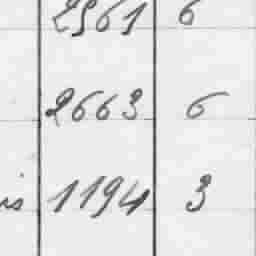 2961 6
2663 6
is 1194 3